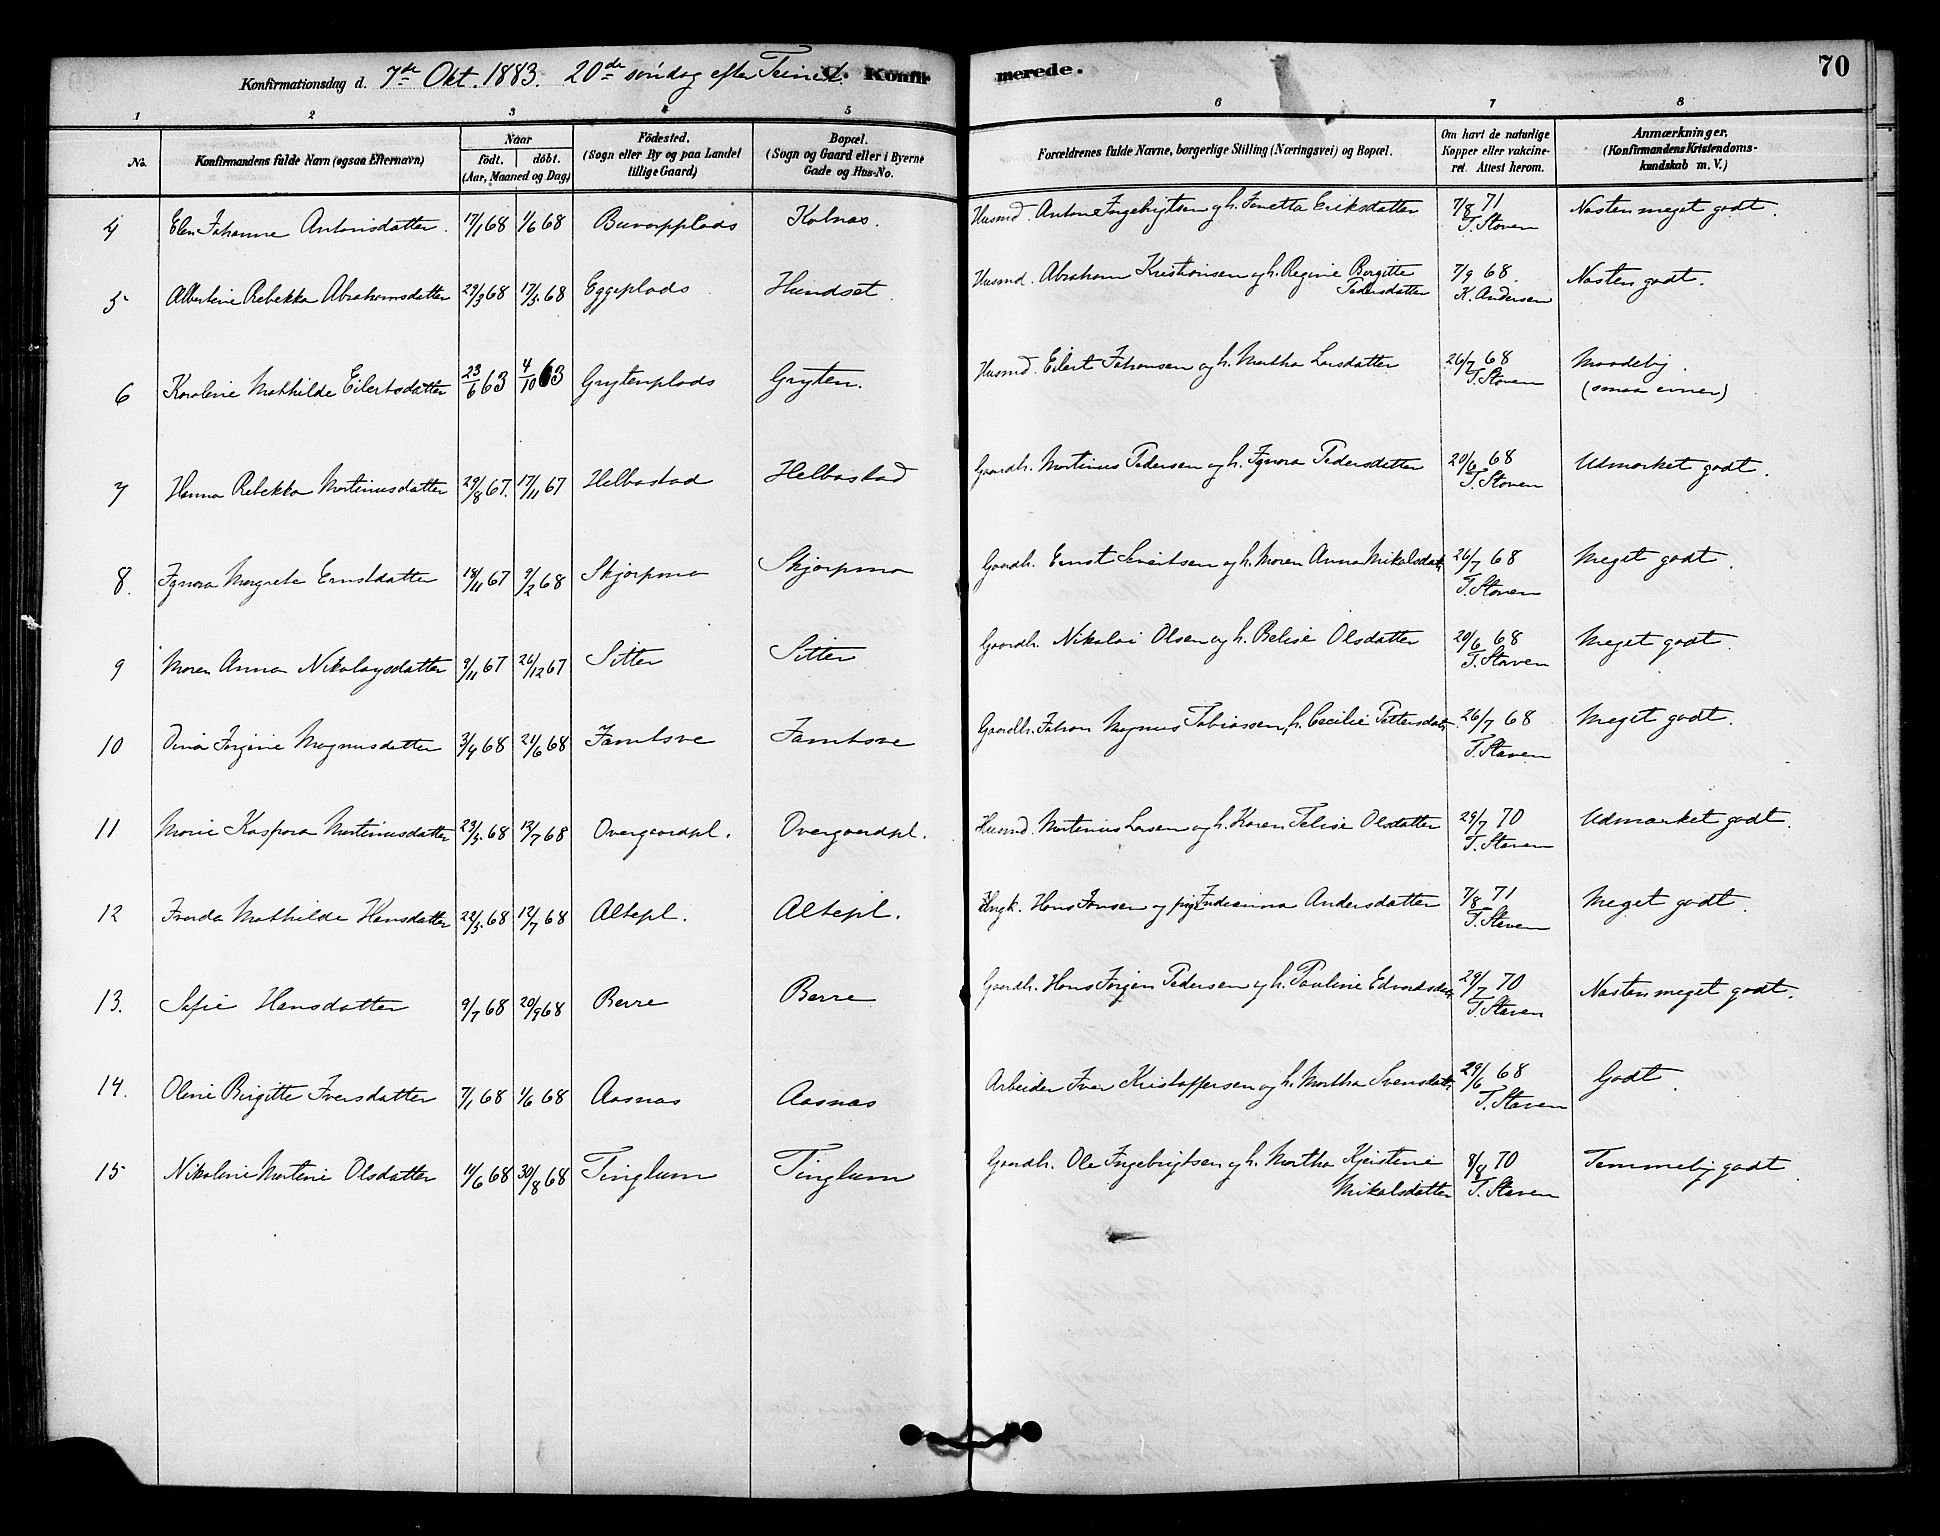 Konfirmationsdag d. 7de Okt. 1883. 20de søndag efter Trinit. C. Konfirmerede. 70
1 2 3 4 5 6 7 8
No. Konfirmandens fulde Navn (ogsaa Efternavn) Naar født. døbt. (Aar, Maaned og Dag) Fødested. (Sogn eller By og paa Landet tillige Gaard) Bopæl. (Sogn og Gaard eller i Byerne Gade og Hus-No. Forældrenes fulde Navne, borgerlige Stilling (Næringsvei) og Bopæl. Om havt de naturlige Kopper eller vakcineret. Attest herom. Anmærkninger, (Konfirmandens Kristendomskundskab m. V.)
4 Elen Johanne Antonisdatter. 17/1 68 1/6 68 Buvarpplads Kalnas. Husmd. Antone Ingebrigtsen og h. Jenetta Eriksdatter 7/8 71 T. Staven Næsten meget godt.
5 Albertine Rebekka Abrahamsdatter 29/3 68 17/5 68 Eggeplads Hundset. Husmd. Abraham Kristiansen og h. Regine Birgitte Pedersdatter 7/9 68. K. Andersen Næsten godt.
6 Karoline Mathilde Eilertsdatter 23/6 63 4/10 63 Grytenplads Gryten. Husmd. Eilert Johansen og h. Martha Larsdatter 26/7 68 T. Staven Maadelig. (smaa evner)
7 Hanna Rebekka Martinusdatter 29/8 67. 17/11 67 Helbostad Helbostad Gaardbr. Martinus Pedersen og h. Ignora Pedersdatter 20/6 68 T. Staven Udmærket godt.
8. Ignora Margrete Ernstdatter 18/11 67 9/2 68 Skjørpmo Skjørpmo Gaardbr. Ernst Sivertsen og h. Maren Anna Nikolsdatr. 26/7 68 T. Staven Meget godt.
9 Maren Anna Nikolaysdatter 9/11 67 26/12 67 Sitter Sitter Gaardbr. Nikolai Olsen og h. Belise Olsdatter 20/6 68 T. Staven Meget godt.
10 Dina Jørgine Magnusdatter 3/4 68 21/6 68 Jamtsve Jamtsve Gaardbr. Johan Magnus Tobiassen, h. Cecilie Pettersdatr. 26/7 68 T. Staven Meget godt.
11 Marie Kaspara Martinusdatter 23/5 68 12/7 68 Overgaardpl. Overgaardpl. Husmd. Martinus Larsen og h. Karen Felise Olsdatter 29/7 70 T. Staven Udmærket godt.
12 Fredda Mathilde Hansdatter 22/5 68 12/7 68 Altepl. Altepl. Ungk. Hans Jonsen og pige Indianna Andersdatter 7/8 71 T. Staven Meget godt.
13. Sefie Hansdatter 9/7 68 20/9 68 Berre Berre Gaardbr. Hans Jørgen Pedersen og h. Pauline Edvardsdatr. 29/7 70 T. Staven Næsten meget godt.
14. Oline Birgitte Iversdatter 7/1 68 1/6 68 Aasnas Aasnas Arbeider Iver Kristoffersen og h. Martha Svensdatr. 29/6 68 T. Staven Godt.
15 Nikoline Martine Olsdatter 11/6 68 30/8 68 Tinglum Tinglum Gaardbr. Ole Ingebrigtsen og h. Martha Kjerstine Nikolsdatter 8/8 70 T. Staven Temmelig godt.